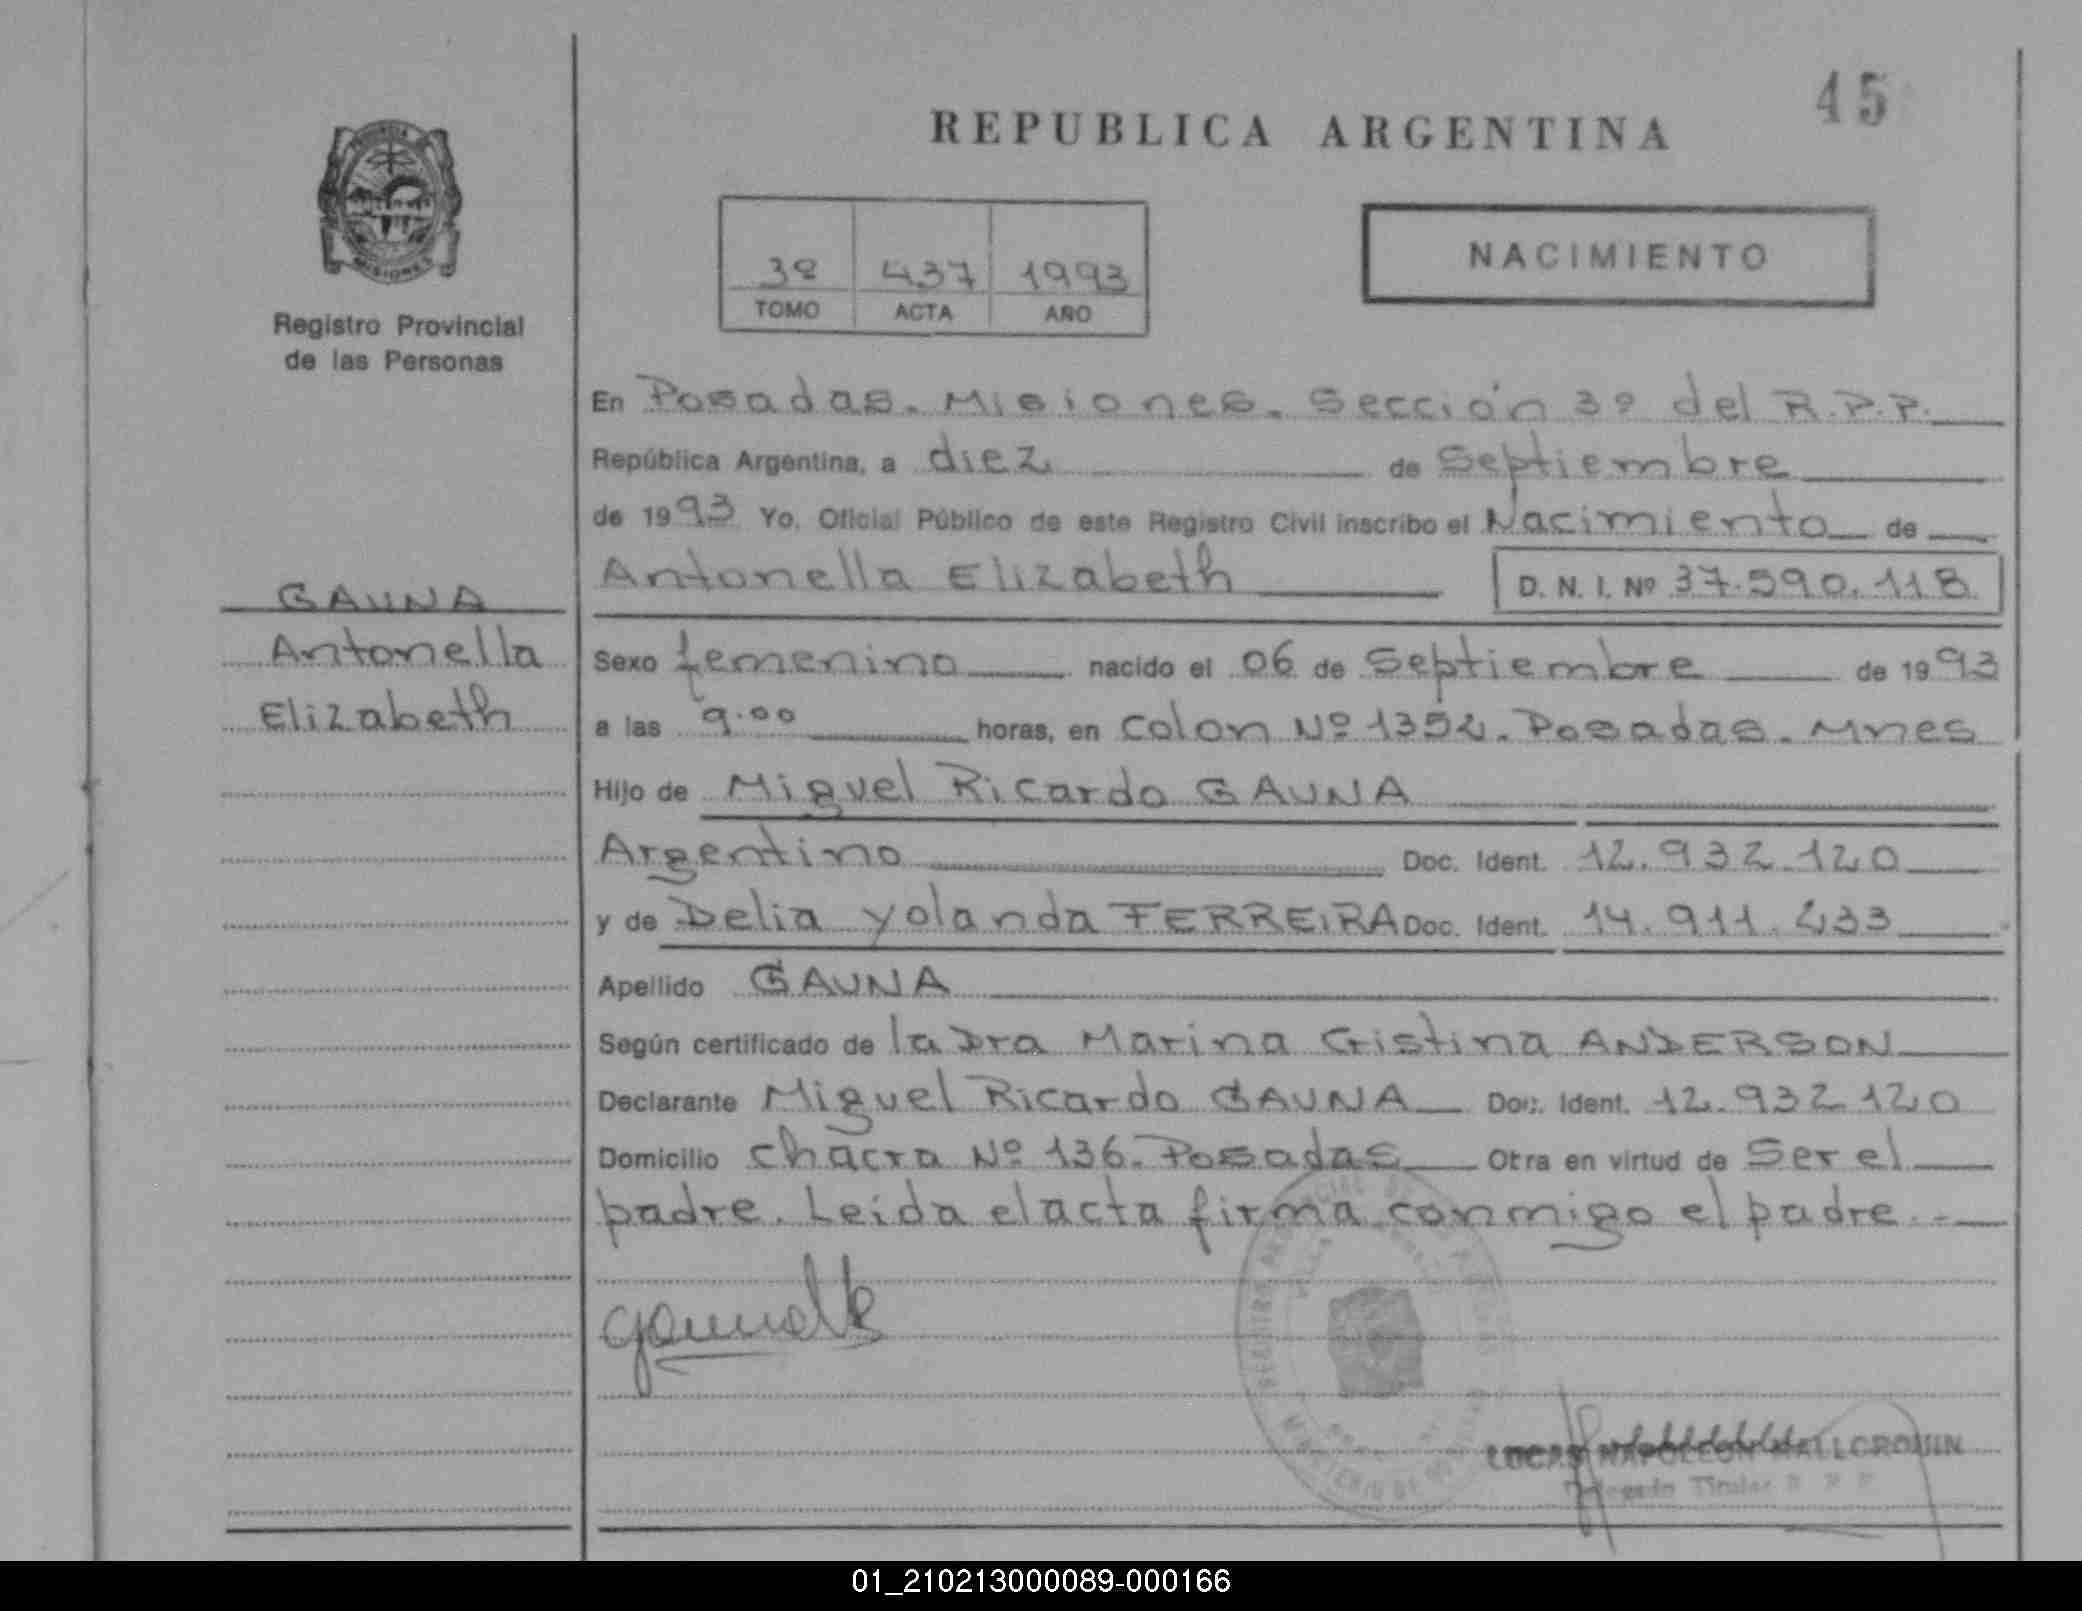 45
REPUBLICA ARGENTINA
MISIONES
Registro Provincial
de las Personas
3º 437 1993
TOMO ACTA AÑO
NACIMIENTO
En Posadas. Misiones. Sección 3º del R.P.P.
República Argentina, a diez de Septiembre
de 1993 Yo, Oficial Público de este Registro Civil inscribo el Nacimiento de
Antonella Elizabeth D. N. I. Nº 37.590.118
GAUNA
Antonella
Elizabeth
Sexo femenino nacido el 06 de Septiembre de 1993
a las 9.00 horas, en Colon Nº 1352. Posadas. Mnes
Hijo de Miguel Ricardo GAUNA
Argentino Doc. Ident. 12.932.120
y de Delia Yolanda FERREIRA Doc. Ident. 14.911.433
Apellido GAUNA
Según certificado de la Dra Marina Cristina ANDERSON
Declarante Miguel Ricardo GAUNA Doc. Ident. 12.932.120
Domicilio Chacra Nº 136. Posadas Obra en virtud de Ser el
padre. Leida el acta firma conmigo el padre.-
LUCAS NAPOLEON
Delegado Titular
01_210213000089-000166